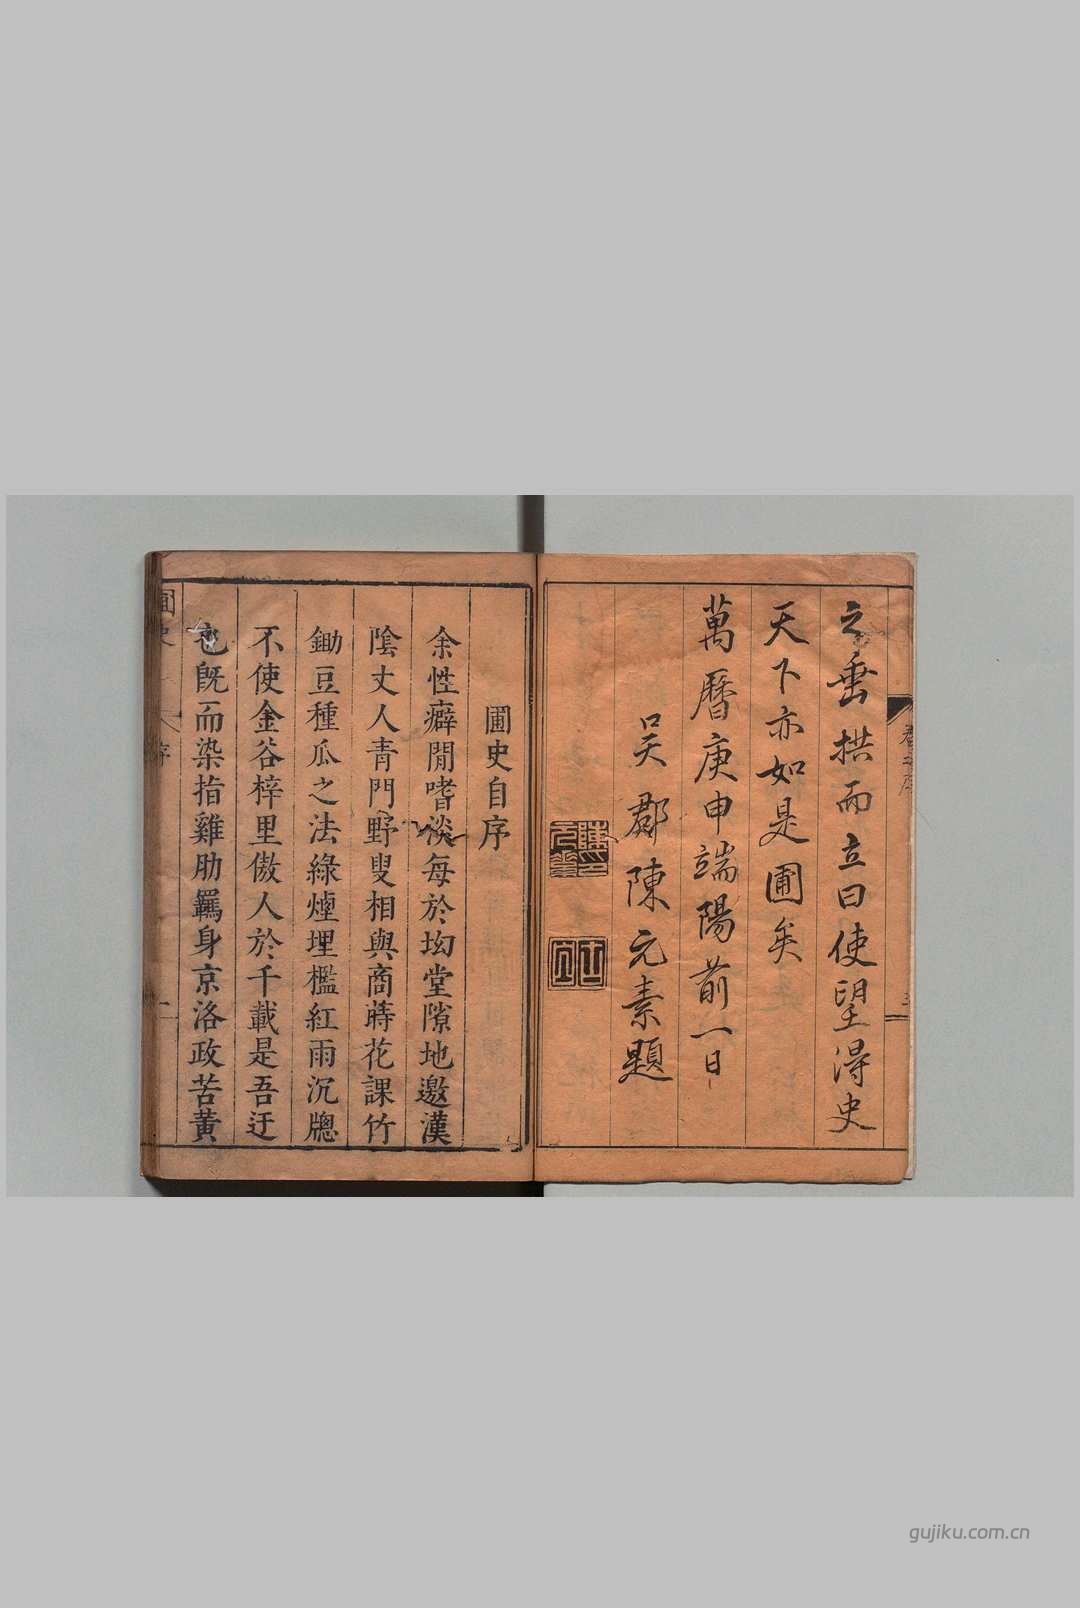 之垂拱而立曰使望得史
天下亦如是圃矣
萬曆庚申端陽前一日
吳郡陳元素題
圃史自序
余性癖閒嗜淡每於坳堂隙地邀漢
陰丈人青門野叟相與商蒔花課竹
鋤豆種瓜之法綠煙埋檻紅雨沉牕
不使金谷梓里傲人於千載是吾迂
也旣而染指雞肋羈身京洛政苦黃
gujiku.com.cn